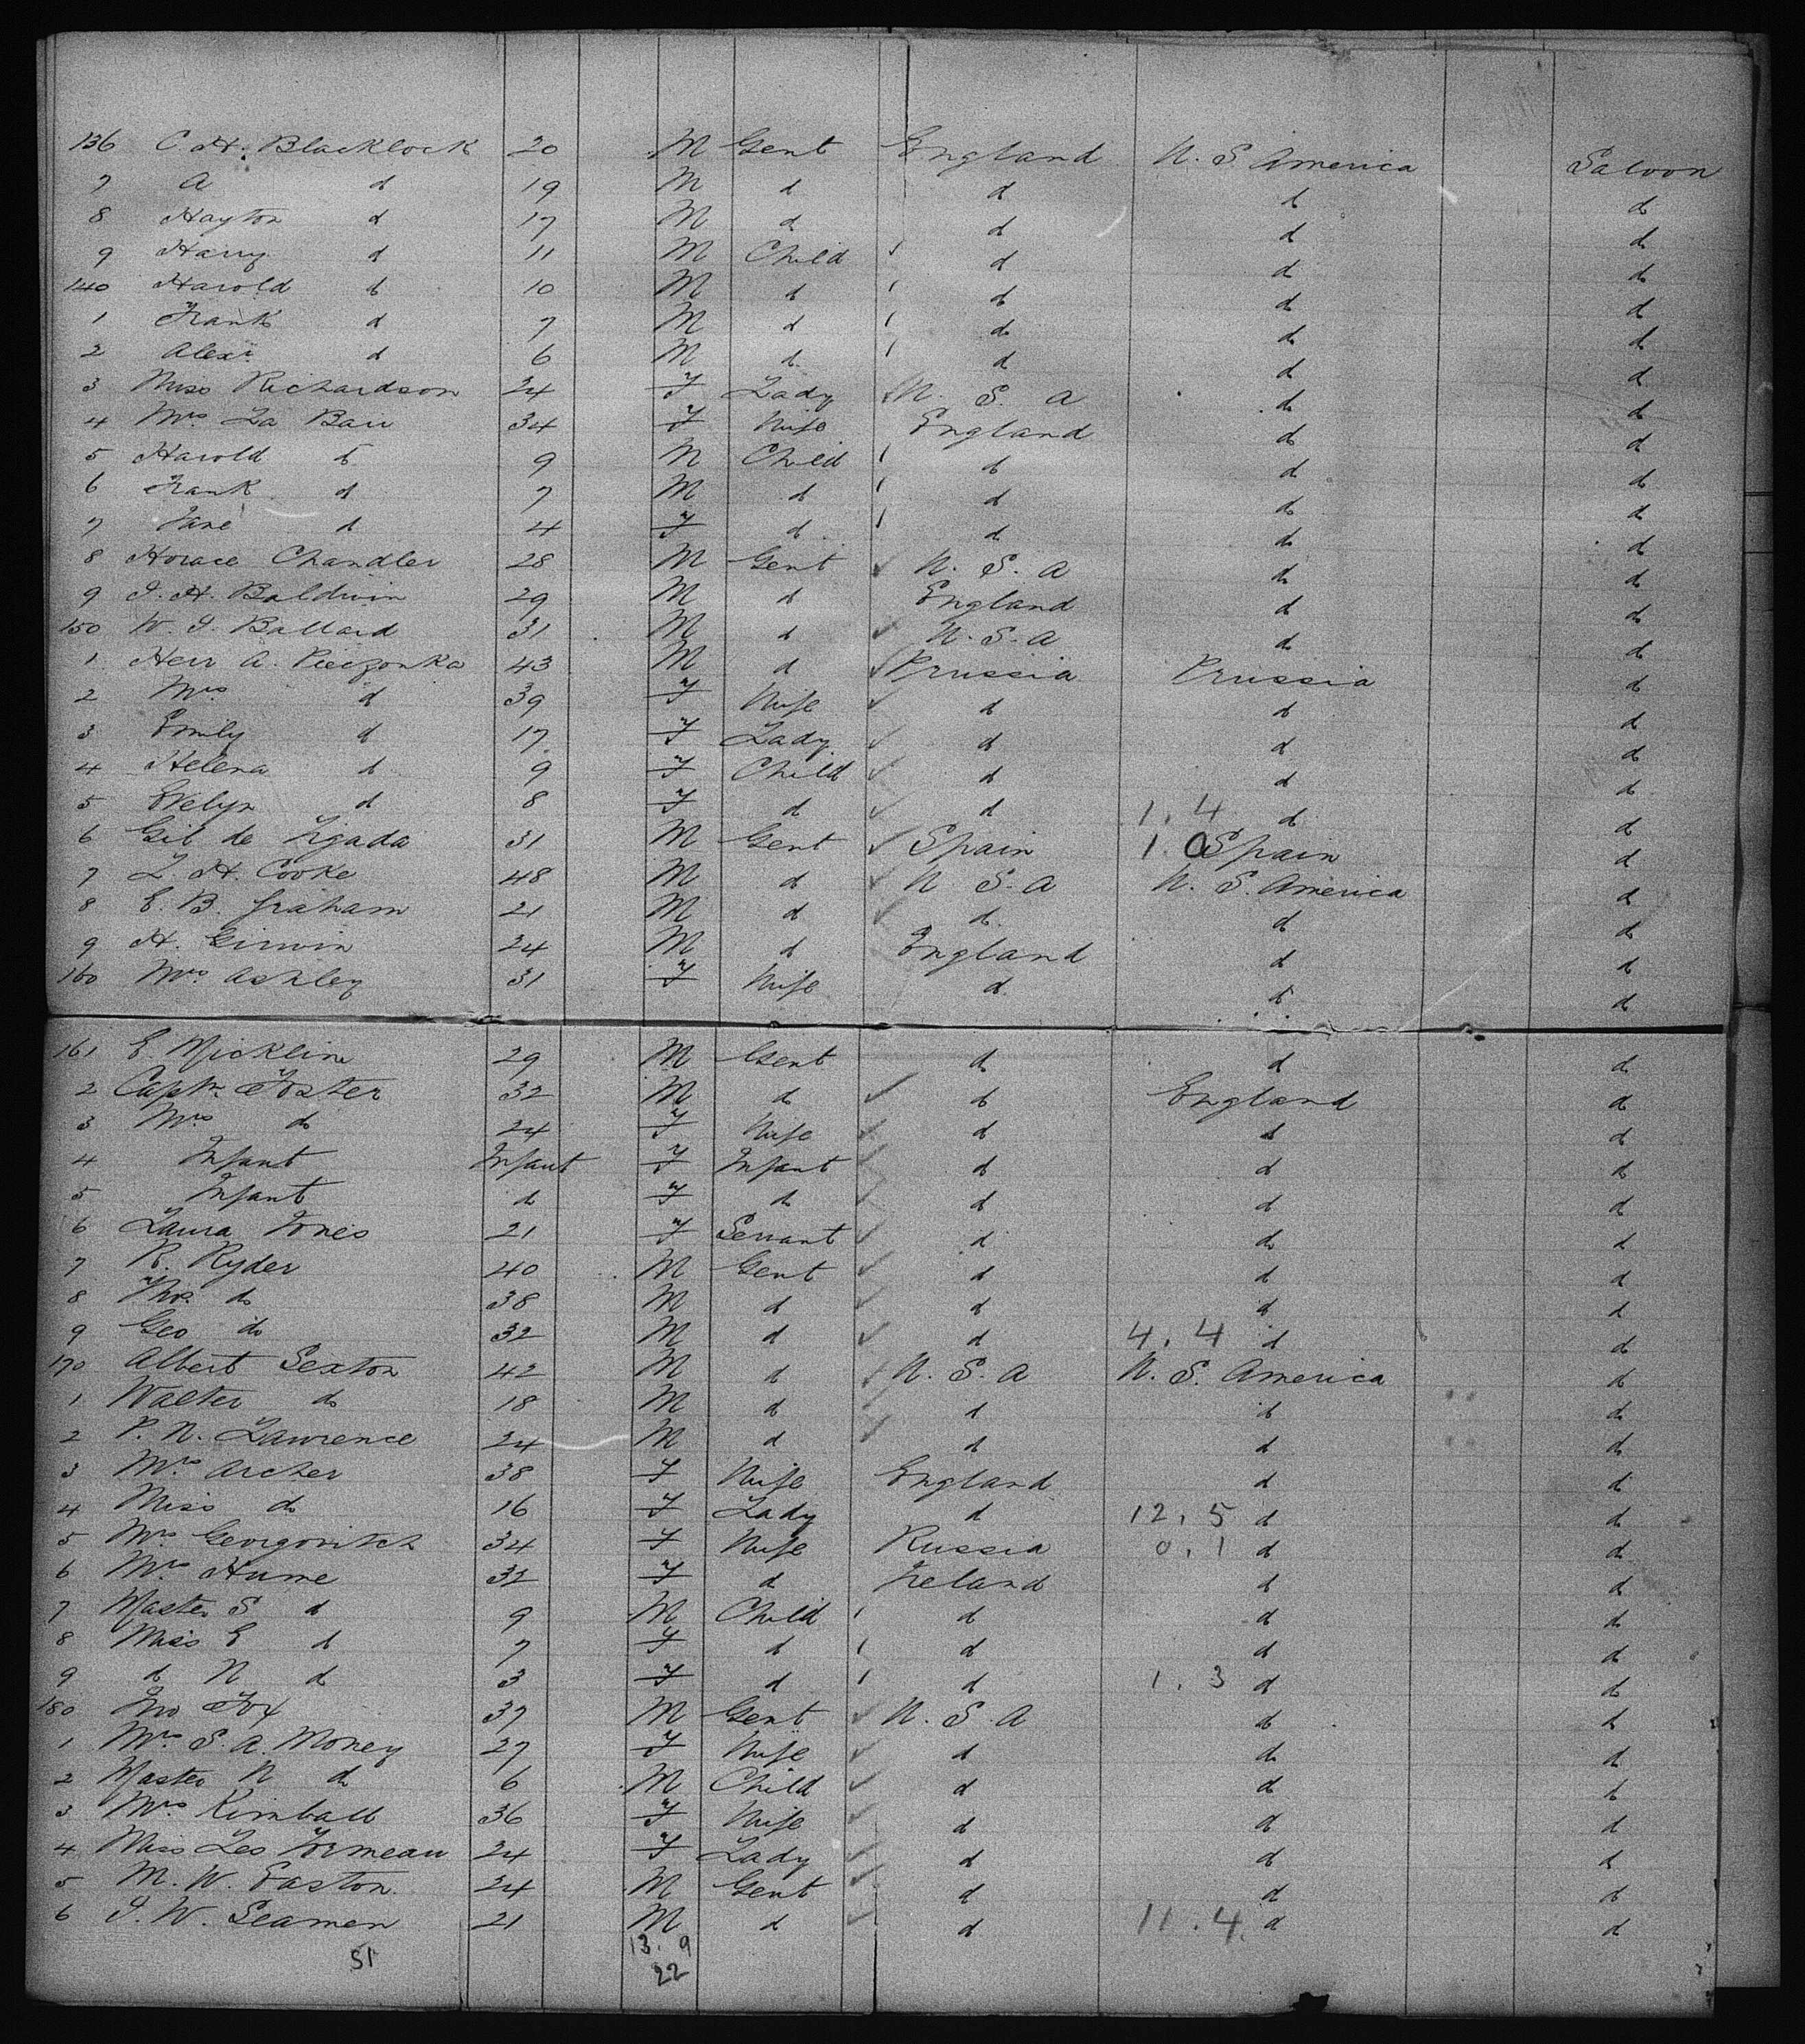 136 C. H. Blacklock 20 M Gent England U. S. America Saloon
7 A d 19 M d d d d
8 Hayton d 17 M d d d d
9 Harry d 11 M Child d d d
140 Harold d 10 M d d d d
1 Frank d 7 M d d d d
2 Alexr d 6 M d d d d
3 Miss Richardson 24 F Lady U. S. A d d
4 Mrs La Bau 34 F Wife England d d
5 Harold d 9 M Child d d d
6 Frank d 7 M d d d d
7 Jane d 4 F d d d d
8 Horace Chandler 28 M Gent U. S. A d d
9 J. H. Baldwin 29 M d England d d
150 W. J. Ballard 31 M d U. S. A d d
1 Herr A. Pieczonka 43 M d Prussia Prussia d
2 Mrs d 39 F Wife d d d
3 Emily d 17 F Lady d d d
4 Helena d 9 F Child d d d
5 Evelyn d 8 F d d 1. 4 d d
6 Gil de Tigada 31 M Gent Spain 1. 0 Spain d
7 L. H. Cooke 48 M d U. S. A U. S. America d
8 E. B. Graham 21 M d d d d
9 H. Girwin 24 M d England d d
160 Mrs Ashley 31 F Wife d d d
161 E. Micklin 29 M Gent d d d
2 Captn Foster 32 M d d England d
3 Mrs do 24 F Wife d d d
4 Infant Infant F Infant d d d
5 Infant d F d d d d
6 Laura Jones 21 F Servant d d d
7 R. Ryder 40 M Gent d d d
8 Thos. do 38 M d d d d
9 Geo do 32 M d d 4. 4 d d
170 Albert Sexton 42 M d U. S. A U. S. America d
1 Walter do 18 M d d d d
2 P. N. Lawrence 24 M d d d d
3 Mrs Archer 38 F Wife England d d
4 Miss do 16 F Lady d 12. 5 d d
5 Mrs Georgovitch 34 F Wife Russia 0. 1 d d
6 Mrs Hume 32 F d Ireland d d
7 Master S d 9 M Child d d d
8 Miss E d 7 F d d d d
9 d N d 3 F d d 1. 3 d d
180 Jno Fox 37 M Gent U. S. A d d
1 Mrs S. A. Money 27 F Wife d d d
2 Master N do 6 M Child d d d
3 Mrs Kimball 36 F Wife d d d
4 Miss Les Formeau 24 F Lady d d d
5 M. W. Easton 24 M Gent d d d
6 J. W. Seamen 21 M d d 11. 4. d d
51 13. 9
22